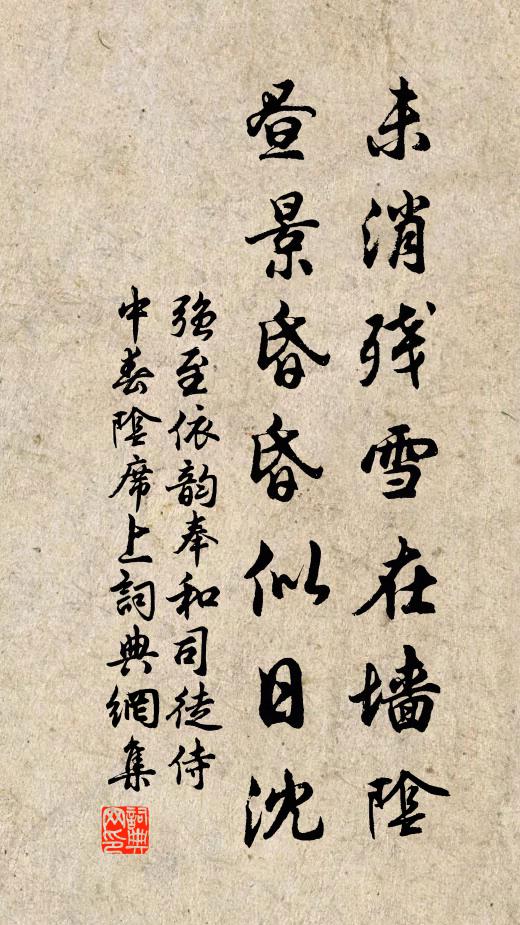 未消残雪在墙陰
昼景昏昏似日沈
强至依韵奉和司徒侍
中春陰席上詞典網集
詞典
网印